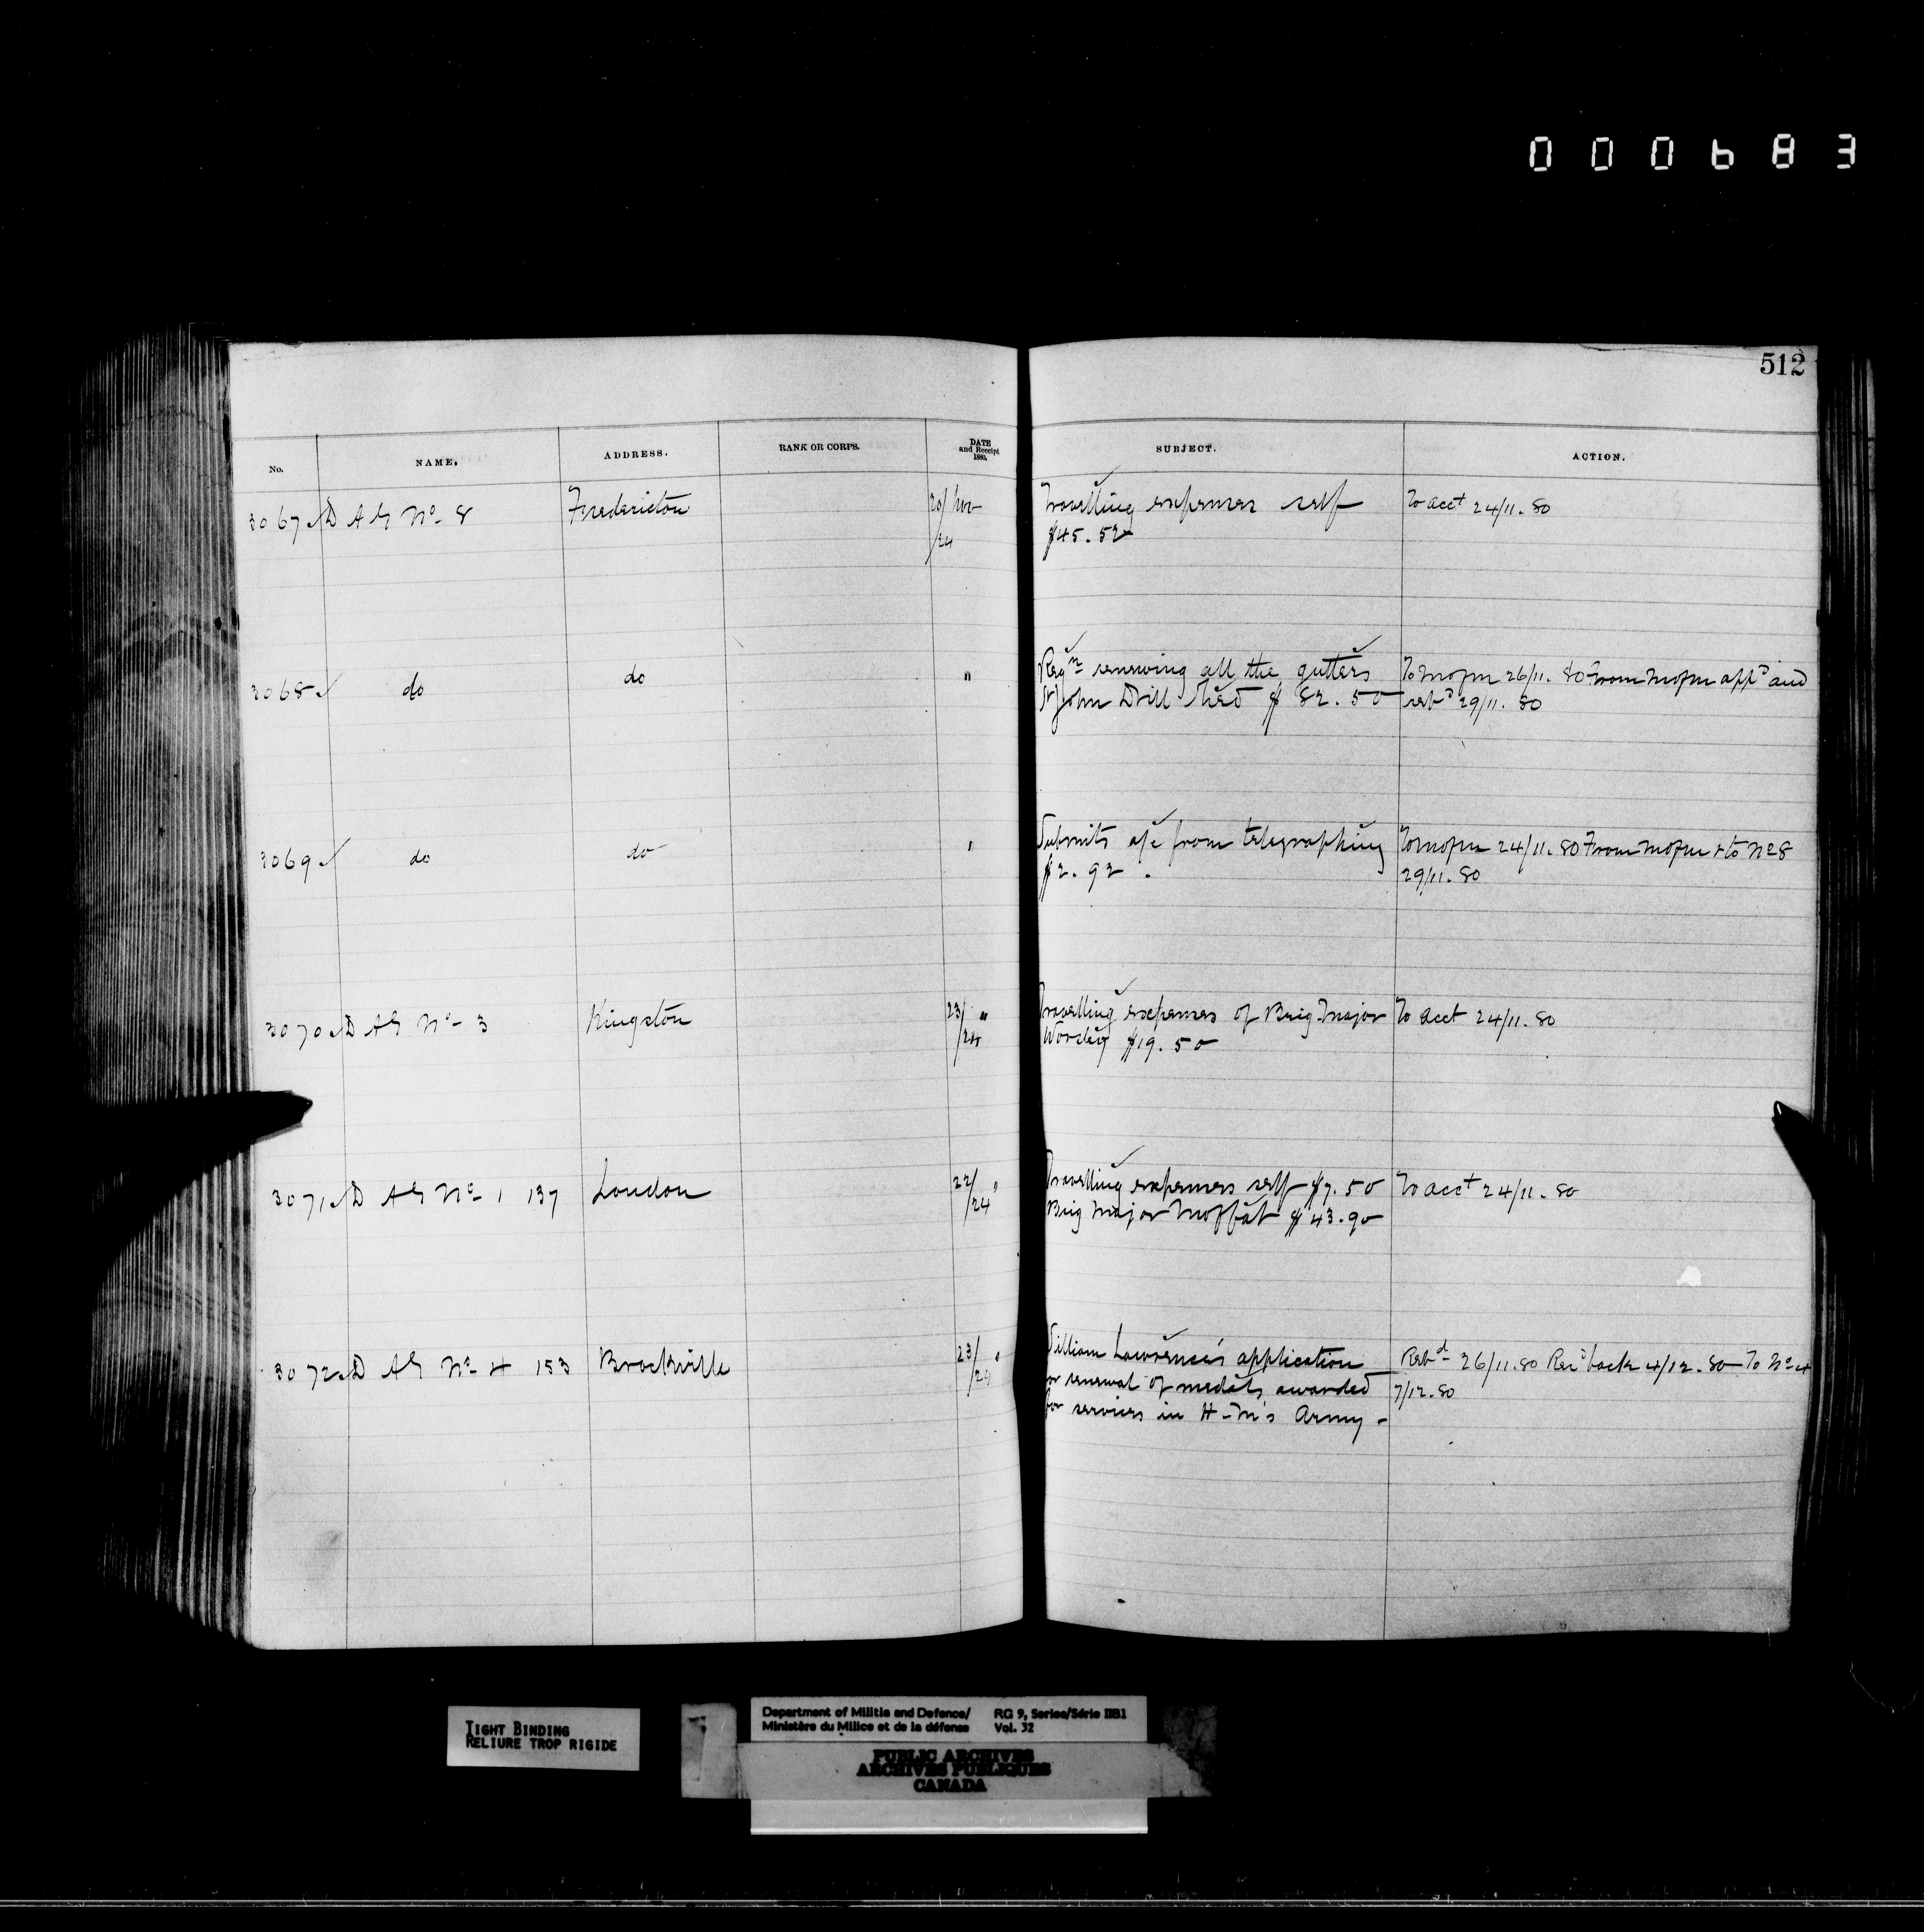 000683
512
No. NAME. ADDRESS. RANK OR CORPS. DATE and Receipt 1880. SUBJECT. ACTION.
3067 D A G No 8 Fredericton 20/Nov Travelling expenses self To acct 24/11.80
/24 $45.52
3068 do do " Reqn renewing all the gutters To mofm 26/11.80 From mofm appd and
St John Drill Shed $82.50 retd 29/11.80
3069 do do " Submits a/c from telegraphing To mofm 24/11.80 From mofm & to No 8
$2.92. 29/11.80
3070 D A G No 3 Kingston 23/ " Travelling expenses of Brig Major To acct 24/11.80
/24 $19.50
3071 D A G No 1 137 London 22/ " Travelling expenses self $7.50 To acct 24/11.80
/24 Brig Major Moffat $43.90
3072 D A G No 4 153 Brockville 23/ " William Lawrence's application Retd 26/11.80 Recd back 4/12.80 To No 4
/24 for renewal of medals awarded 7/12.80
for services in H-M's Army -
TIGHT BINDING
RELIURE TROP RIGIDE
Department of Militia and Defence/ RG 9, Series/Série IIB1
Ministère du Milice et de la défense Vol. 32
PUBLIC ARCHIVES
ARCHIVES PUBLIQUES
CANADA